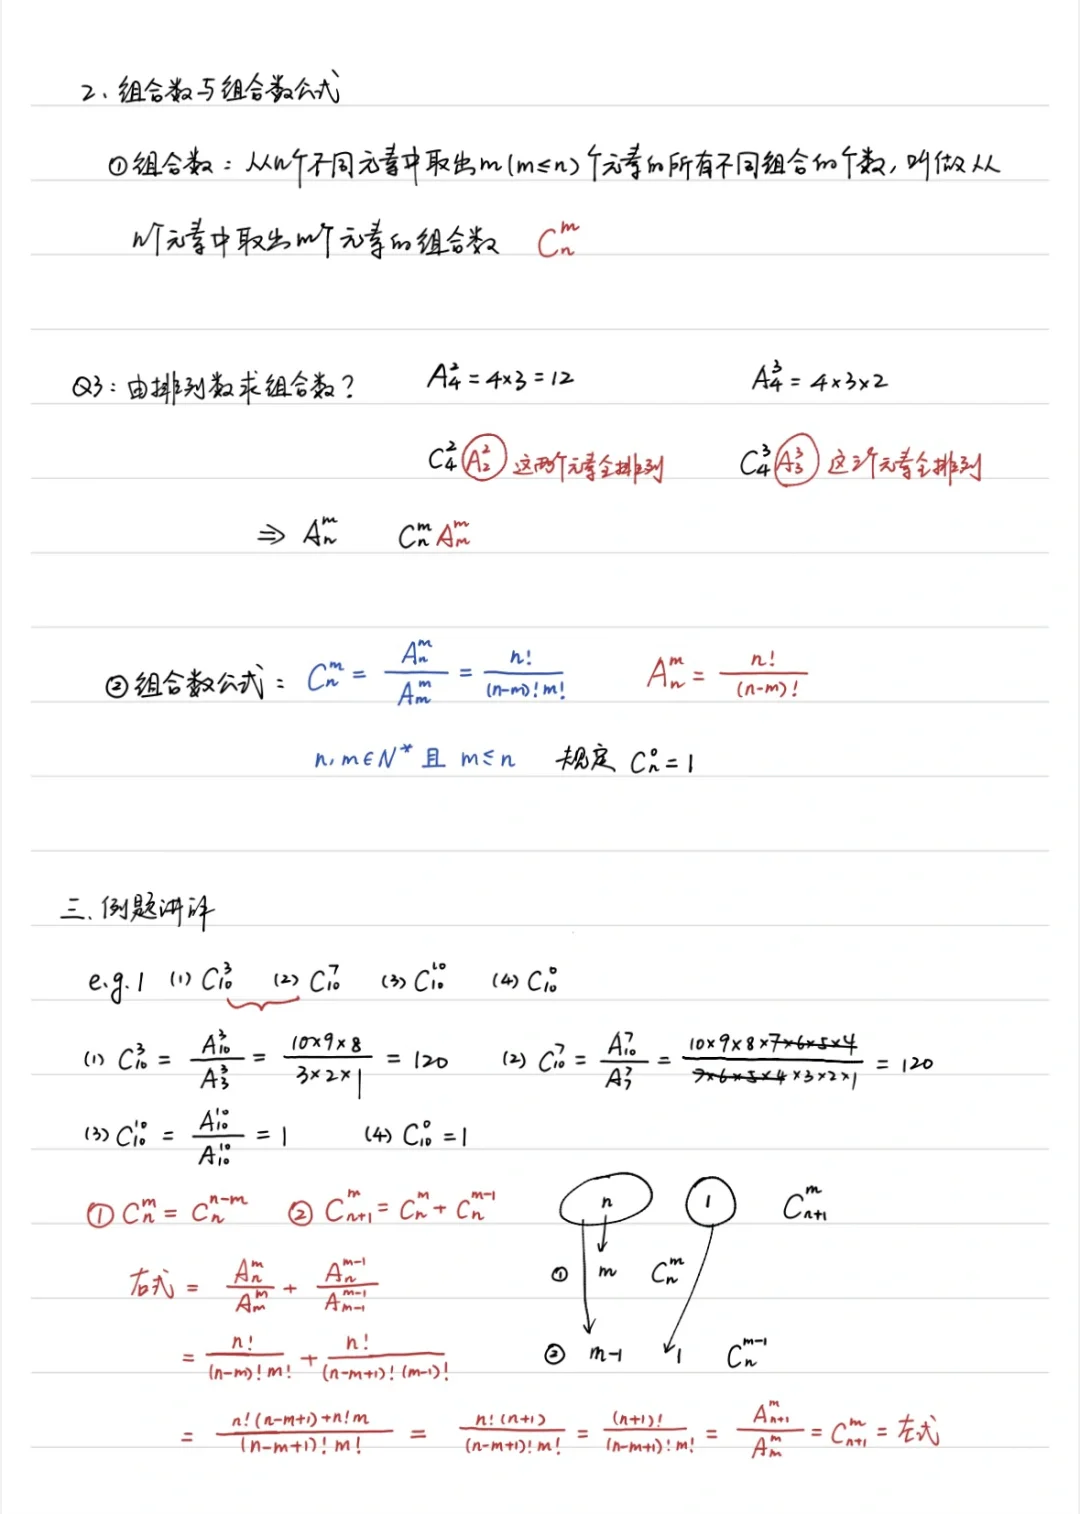 2、组合数与组合数公式
①组合数：从n个不同元素中取出m(m≤n)个元素的所有不同组合的个数，叫做从
n个元素中取出m个元素的组合数 C_n^m
Q3：由排列数求组合数？ A_4^2=4×3=12 A_4^3=4×3×2
C_4^2 A_2^2 这两个元素全排列 C_4^3 A_3^3 这三个元素全排列
⇒ A_n^m C_n^m A_m^m
②组合数公式： C_n^m = A_n^m / A_m^m = n! / (n-m)!m! A_n^m = n! / (n-m)!
n,m∈N* 且 m≤n 规定 C_n^0=1
三、例题讲评
e.g.1 (1) C_10^3 (2) C_10^7 (3) C_10^10 (4) C_10^0
(1) C_10^3 = A_10^3 / A_3^3 = 10×9×8 / 3×2×1 = 120 (2) C_10^7 = A_10^7 / A_7^7 = 10×9×8×7×6×5×4 / 7×6×5×4×3×2×1 = 120
(3) C_10^10 = A_10^10 / A_10^10 = 1 (4) C_10^0=1
① C_n^m = C_n^{n-m} ② C_{n+1}^m = C_n^m + C_n^{m-1} n 1 C_{n+1}^m
右式 = A_n^m / A_m^m + A_n^{m-1} / A_{m-1}^{m-1} ① m C_n^m
= n! / (n-m)!m! + n! / (n-m+1)!(m-1)! ② m-1 1 C_n^{m-1}
= n!(n-m+1)+n!m / (n-m+1)!m! = n!(n+1) / (n-m+1)!m! = (n+1)! / (n-m+1)!m! = A_{n+1}^m / A_m^m = C_{n+1}^m = 左式